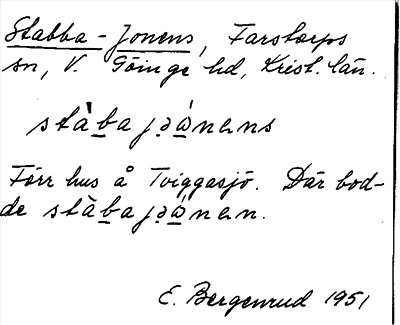 Stabba-Jonens, Farstorps
sn, V. Göinge hd, Krist. län.
stàba jənɘns
Förr hus å Tviggasjö. Där bod-
de stàba jənɘn.
E. Bergenrud 1951